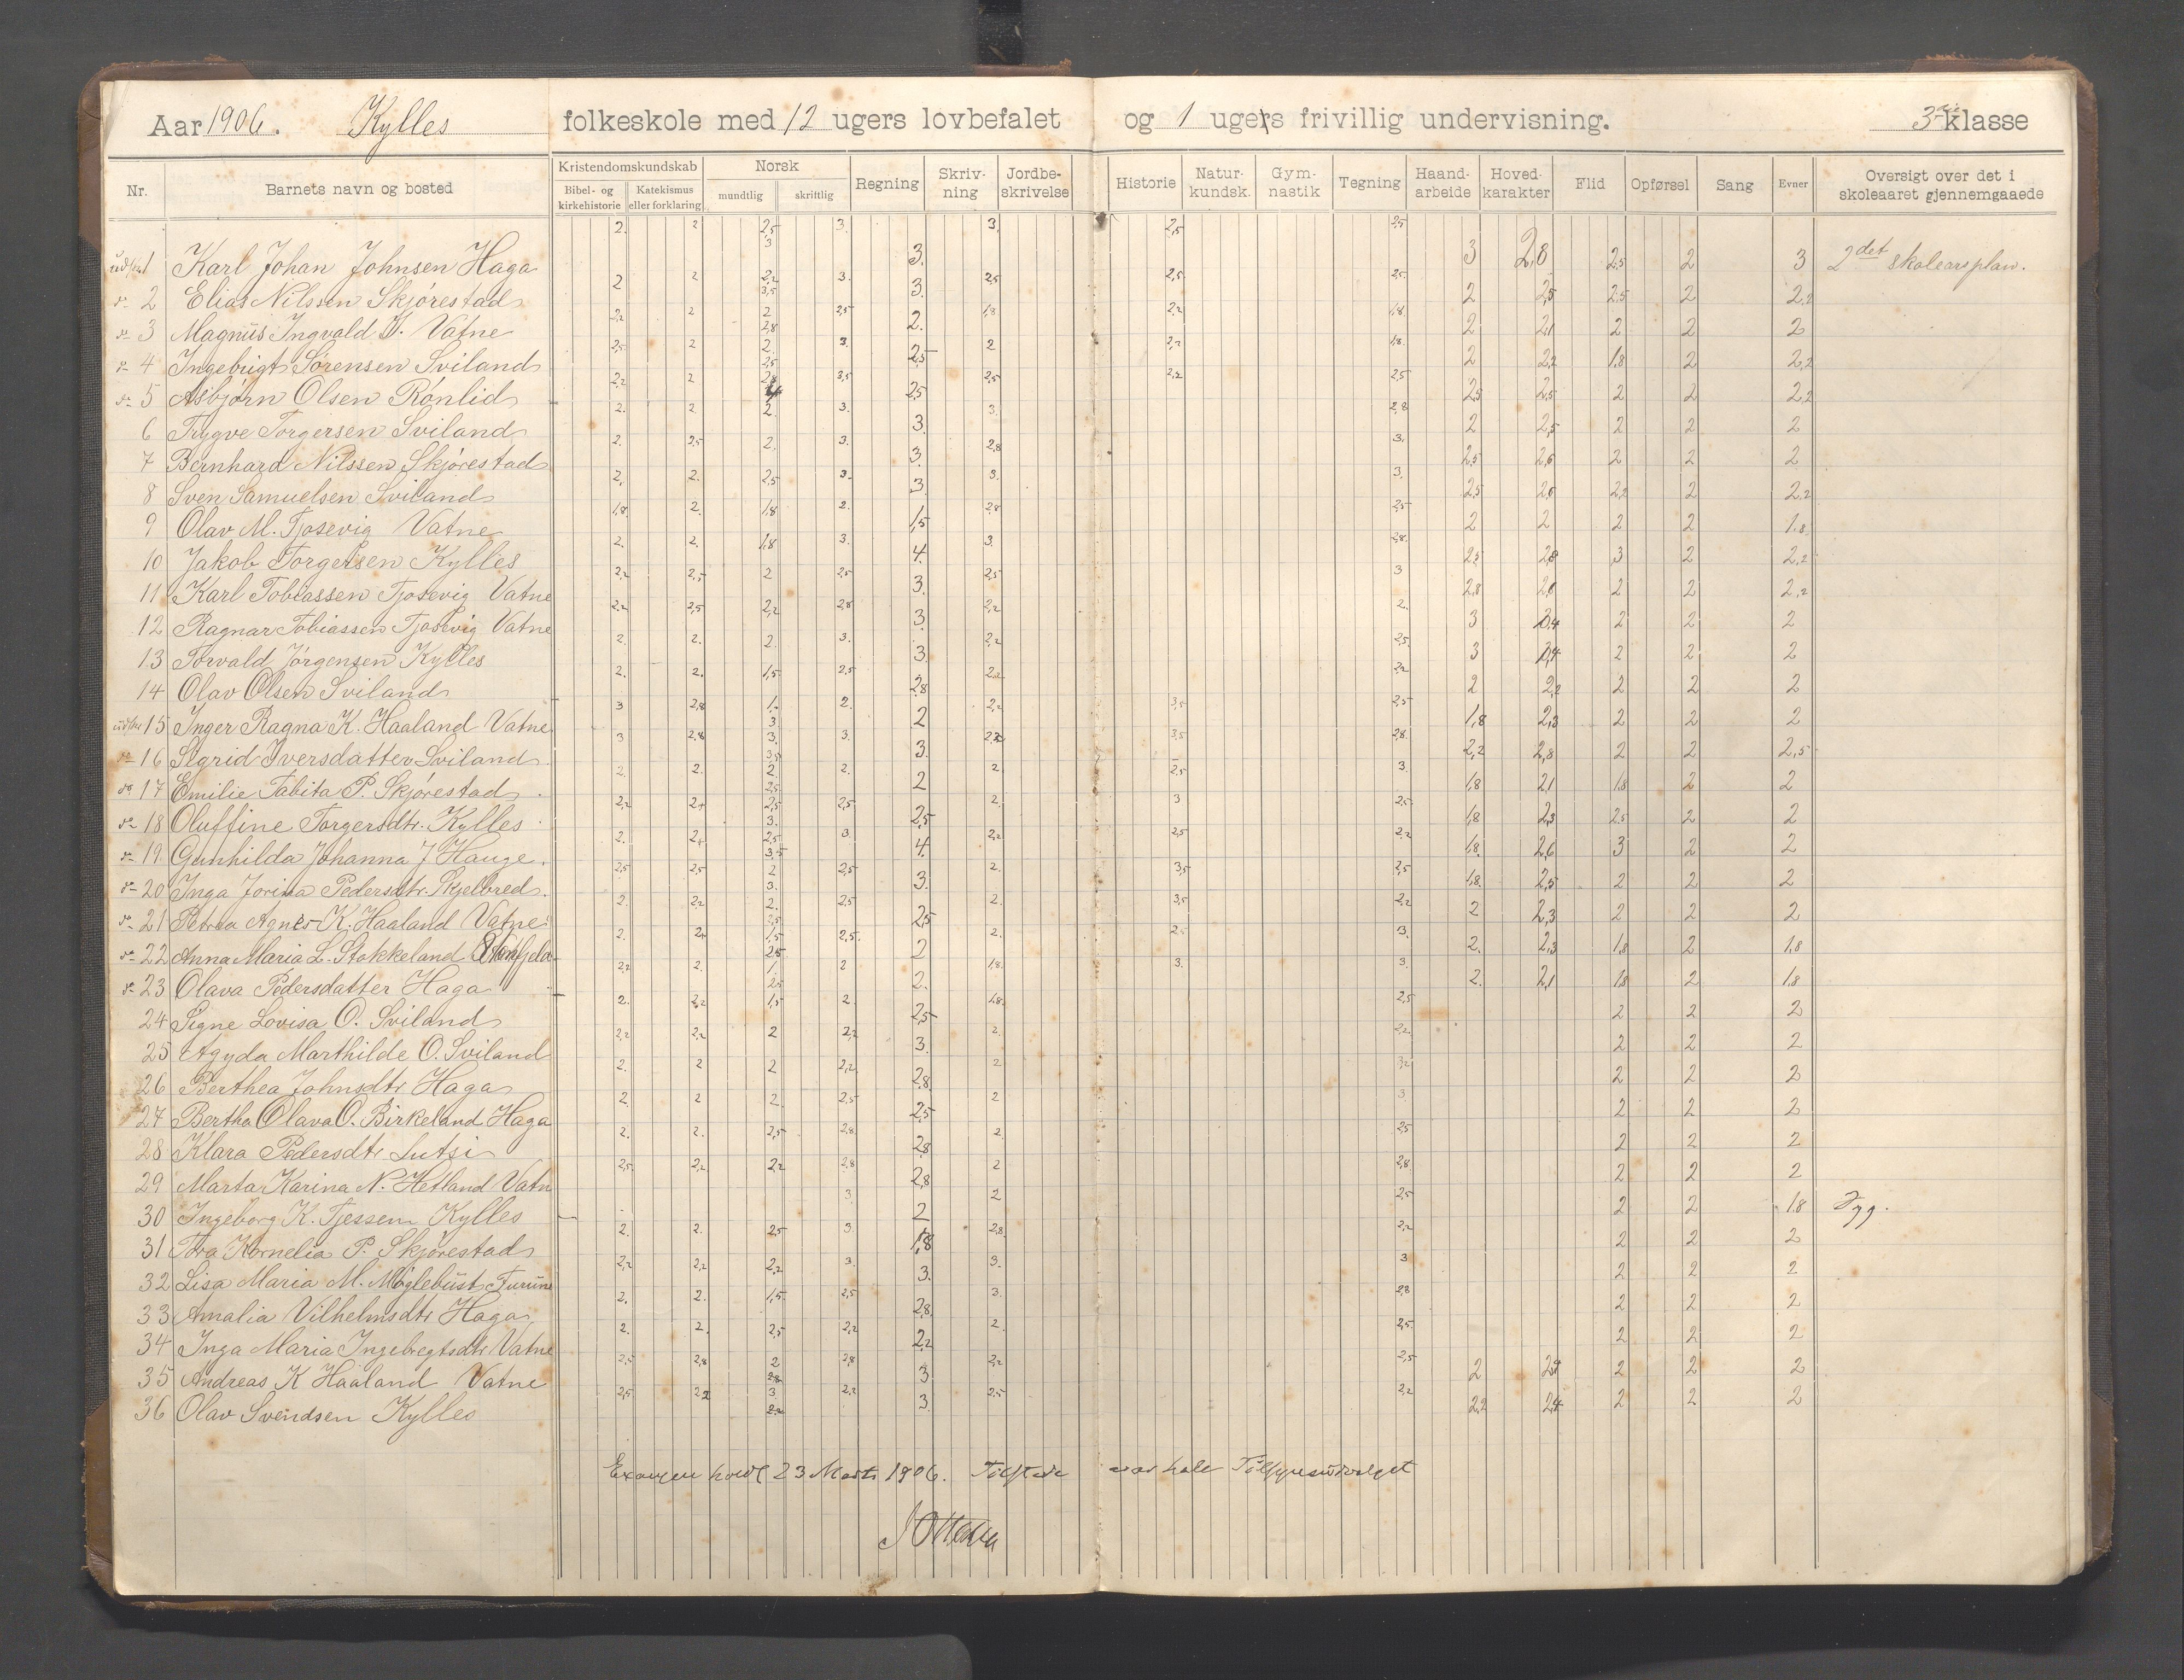 Aar 1906. Kylles folkeskole med 12 ugers lovbefalet og 1 ugers frivillig undervisning. 3die klasse
Nr. Barnets navn og bosted Kristendomskundskab Norsk Regning Skrivning Jordbeskrivelse Historie Naturkundsk. Gymnastik Tegning Haandarbeide Hovedkarakter Flid Opførsel Sang Evner Oversigt over det i skoleaaret gjennemgaaede
Bibel- og kirkehistorie Katekismus eller forklaring mundtlig skriftlig
1 Karl Johan Johnsen Haga 2. 2 2,5 3 3. 3. 3. 2,5 2,5 3 2,8 2,5 2 3 2det skoleaarsplan.
do 2 Elias Nilssen Skjørestad 2 2 2,2 3,5 3. 3. 2,5 2,5 2,5 2 2,5 2,5 2 2,2
do 3 Magnus Ingvald J. Vatne 2,2 2 2 2,8 2,5 2. 1,8 2,2 1,8 2 2,1 2 2 2
do 4 Ingebrigt Sørensen Sviland 2,5 2 2 2,5 3. 2,5 2 2,2 1,8 2 2,2 1,8 2 2,2
do 5 Asbjørn Olsen Rønlid 2,2 2 2,8 4 3,5 2,5 2,5 2,2 2,5 2,5 2,5 2 2 2,2
6 Trygve Torgersen Sviland 2. 2 2. 3. 3. 3. 2,8 2 2,5 2 2 2
7 Bernhard Nilssen Skjørestad 2. 2,5 2. 3. 3. 2,8 3. 2,5 2,6 2 2 2
8 Sven Samuelsen Sviland 2. 2. 2,5 3. 3. 3. 3. 2,5 2,6 2,2 2 2,2
9 Olav M. Tjosevig Vatne 1,8 2. 1,8 2. 1,5 2,8 2,5 2 2 2 2 1,8
10 Jakob Torgersen Kylles 2. 2. 1,8 3. 4. 3. 2,8 2,5 2,8 3 2 2,2
11 Karl Tobiassen Tjosevig Vatne 2,2 2,5 2 2,5 3. 2,5 3 2,8 2,6 2 2 2,2
12 Ragnar Tobiassen Tjosevig Vatne 2,2 2,5 2,2 2,8 3. 2,2 2. 3 2,4 2 2 2
13 Torvald Jørgensen Kylles 2. 2. 2. 3. 3. 2,2 2,5 3 2,4 2 2 2
14 Olav Olsen Sviland 2. 2. 1,5 2,5 2,8 2,2 2,2 2 2,2 2 2 2
15 Inger Ragna K. Haaland Vatne 3 2,8 1. 3 2. 2 2,2 3,5 2,5 1,8 2,3 2 2 2
do 16 Sigrid Iversdatter Sviland 3 2,8 3. 3,5 3. 3. 2,2 3,5 2,8 2,2 2,8 2 2 2,5
do 17 Emilie Tabita P. Skjørestad 2. 2. 2. 2,5 2. 2 2 2,5 3. 1,8 2,1 1,8 2 2
do 18 Oluffine Torgersdtr. Kylles 2,2 2+ 2,5 3. 2,5 2,5 2. 3 2,5 1,8 2,3 2,5 2 2
do 19. Gunhilda Johanna J Hauge. 2. 2+ 2,5 3,5 3. 4. 2,2 2,5 2,2 1,8. 2,6 3 2 2
do 20 Inga Jorina Pedersdtr. Skjelbred. 2,5 2,5 2 3. 2,5 3. 2. 3,5 2,5 1,8. 2,5 2 2 2
do 21 Petra Agnes K. Haaland Vatne 2. 2,2 2. 3,5 2,5 2,5 2. 3,5 2,2 2 2,3 2 2 2
do 22 Anna Maria L. Stokkeland 2. 2+ 1,5 2,5 2,5. 2 2. 2,5 3. 2. 2,3 1,8 2 1,8
do 23 Olava Pedersdatter Haga 2,2 2. 1. 2,5 2 2. 1,8. 3. 3. 2. 2,1 1,8 2 1,8
24 Signe Lovisa O. Sviland 2. 2,2 1,5 2. 2,5 1,8. 2,5 2 2 2
25 Agyda Marthilde O. Sviland 2,2 2,2 2 2,2 3. 2. 2,2 2 2 2
26 Berthea Johnsdtr Haga 2. 2 2 2,2 2,8 2 3,2 2 2 2
27 Bertha Olava O. Birkeland Haga 2. 2 2. 2,5 2,5 2 3 2 2 2
28 Klara Pedersdtr Lutsi 2. 2. 2,5 2,8 2,8 2 2,5 2 2 2
29 Marta Karina N. Hetland Vatn 2,5. 2,2 2,2 2,8 2,8 2 2,8 2 2 2
30 Ingeborg K. Tjessem Kylles 3 2 2 2,5 2 2 1,8 Syg.
31 Tora Kornelia P. Skjørestad 2. 2. 2,5 3 1,8 2,8 2,2 2 2 2
32 Lisa Maria M. Møglebust, Furune 2,2 2,2 2,2 3. 3. 3. 3 2 2 2
33 Amalia Vilhelmsdtr Haga 2. 2. 1,5 2,5 2,8 3. 2,8 2 2 2
34 Inga Maria Ingebregtsdtr Vatne 2. 2. 2,5 2,2 2,2 2. 2,5 2 2 2
35 Andreas K Haaland Vatne 2,5 2,8 2 2,8 2,8 3. 2,2 2,5 2 2,4 2 2 2
36 Olav Svendsen Kylles 2,5 2,2 3 2,2 2,2 3. 2,5 2,2 2,2 2,4 2 2 2
Examen holdt 23 Marts 1906. Tilstede var hele Tilsynsudvalget